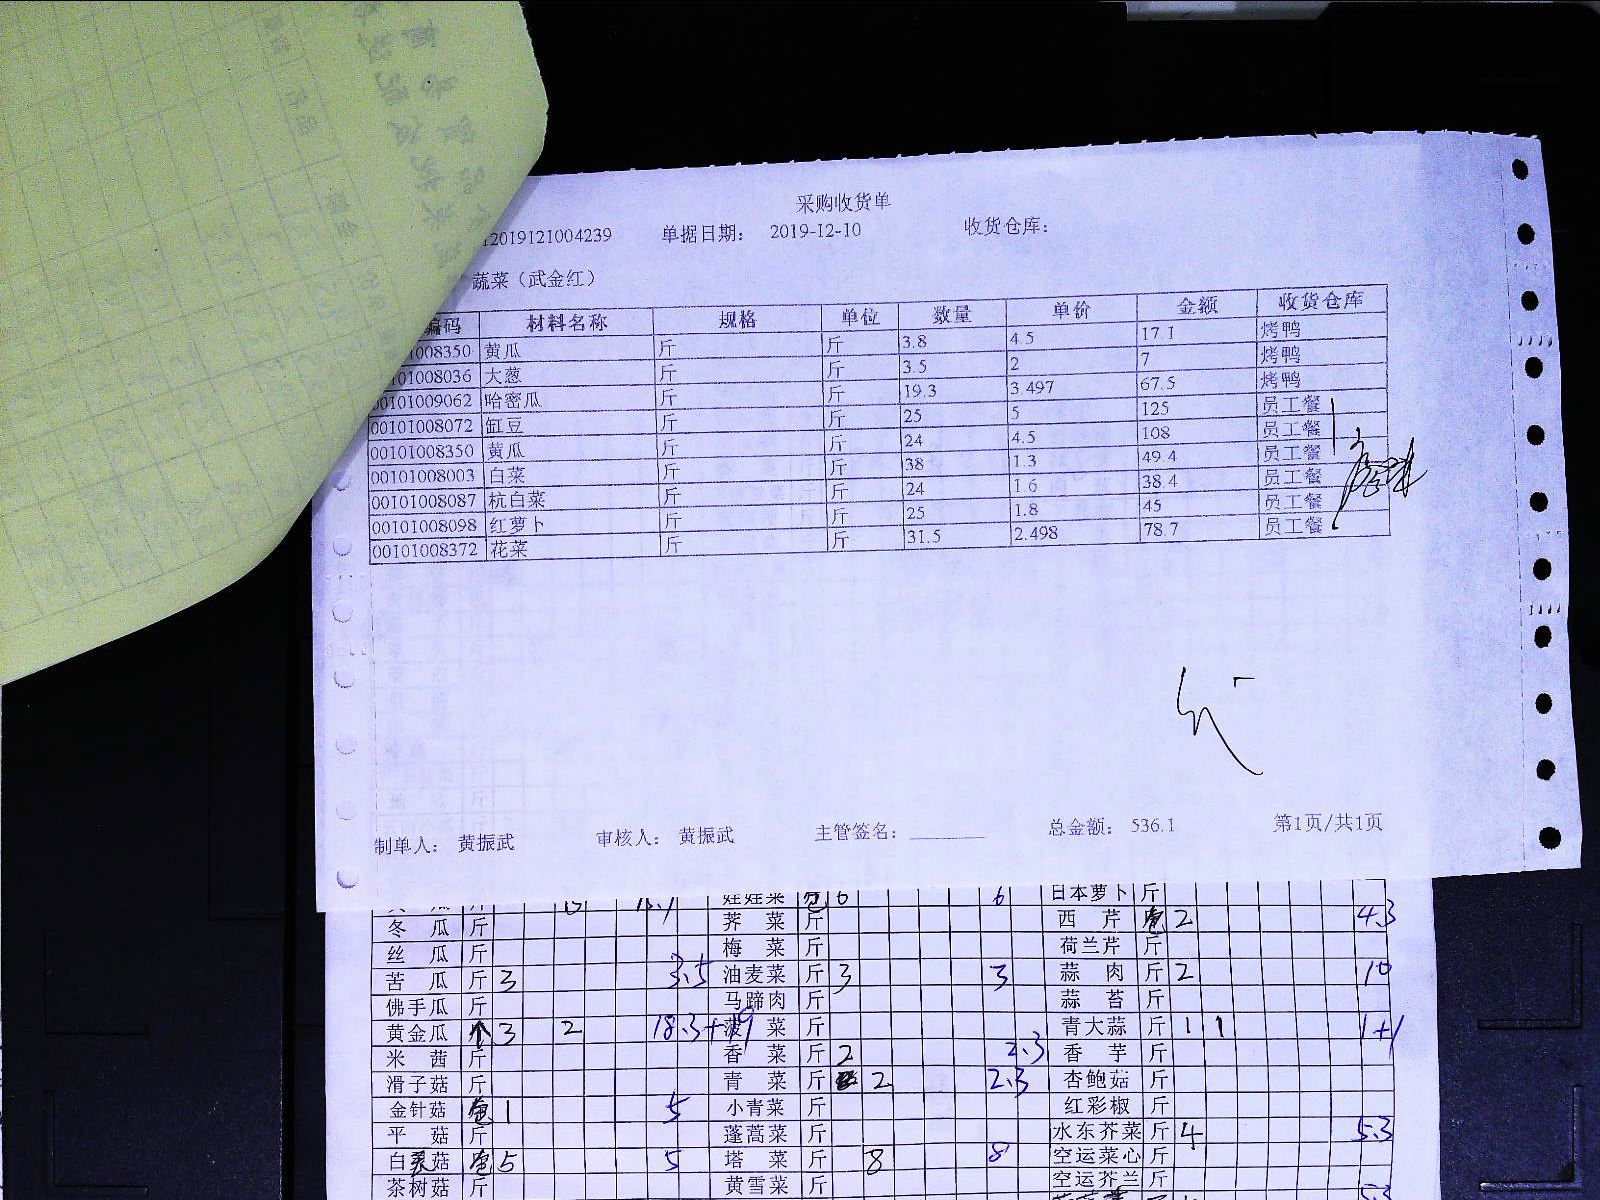 采购收货单
12019121004239 单据日期： 2019-12-10 收货仓库：
蔬菜（武金红）
编码 材料名称 规格 单位 数量 单价 金额 收货仓库
01008350 黄瓜 斤 斤 3.8 4.5 17.1 烤鸭
0101008036 大葱 斤 斤 3.5 2 7 烤鸭
00101009062 哈密瓜 斤 斤 19.3 3.497 67.5 烤鸭
00101008072 缸豆 斤 斤 25 5 125 员工餐
00101008350 黄瓜 斤 斤 24 4.5 108 员工餐
00101008003 白菜 斤 斤 38 1.3 49.4 员工餐
00101008087 杭白菜 斤 斤 24 1.6 38.4 员工餐
00101008098 红萝卜 斤 斤 25 1.8 45 员工餐
00101008372 花菜 斤 斤 31.5 2.498 78.7 员工餐
制单人： 黄振武 审核人： 黄振武 主管签名： 总金额： 536.1 第1页/共1页
娃娃菜 包 6 6 日本萝卜 斤
冬瓜 斤 荠菜 斤 西芹 2 4.3
丝瓜 斤 梅菜 斤 荷兰芹 斤
苦瓜 斤 3 3.5 油麦菜 斤 3 3 蒜肉 斤 2 10
佛手瓜 斤 马蹄肉 斤 蒜苔 斤
黄金瓜 个 3 2 18.3+19 菠菜 斤 青大蒜 斤 1 1 1+1
米茜 斤 香菜 斤 2 2.3 香芋 斤
滑子菇 斤 青菜 斤 2 2.3 杏鲍菇 斤
金针菇 包 1 5 小青菜 斤 红彩椒 斤
平菇 斤 蓬蒿菜 斤 水东芥菜 斤 4 5.3
白灵菇 包 5 5 塔菜 斤 8 8 空运菜心 斤
茶树菇 斤 黄雪菜 斤 空运芥兰 斤
5.3